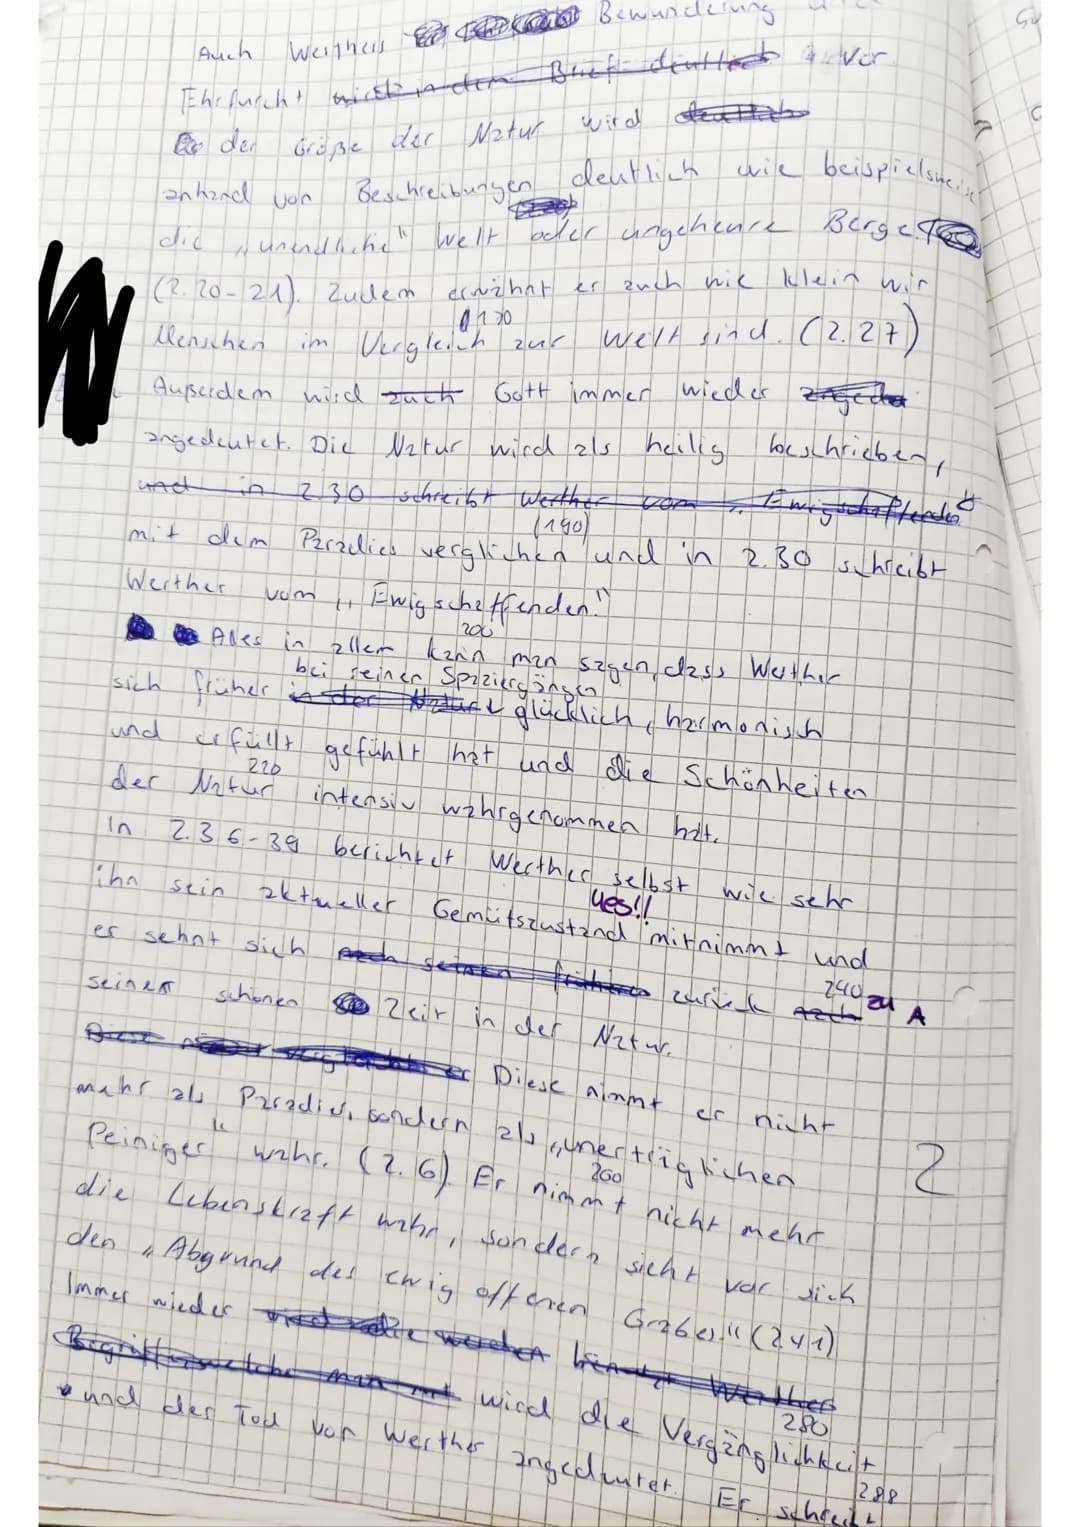 Auch Werthers Bewunderung
Ehrfurcht wird in dem Brief deutlich vor
der Größe der Natur wird deutlich
anhand von Beschreibungen deutlich wie beispielsweise
die „unendliche" Welt oder ungeheure Berge
(Z.20-21). Zudem erwähnt er auch wie klein wir
130
Menschen im Vergleich zur Welt sind. (Z.27)
Außerdem wird auch Gott immer wieder
angedeutet. Die Natur wird als heilig beschrieben,
und in Z.30 schreibt Werther vom „Ewigschaffenden"
(190)
mit dem Paradies verglichen und in Z.30 schreibt
Werther vom „Ewigschaffenden."
200
Alles in allem kann man sagen, dass Werther
bei seinen Spaziergängen
sich früher in der Natur glücklich, harmonisch
und erfüllt gefühlt hat und die Schönheiten
220
der Natur intensiv wahrgenommen hat.
In Z.36-39 berichtet Werther selbst wie sehr
ihn sein aktueller Gemütszustand mitnimmt und
yes!!
er sehnt sich nach seinen früheren zurück nach zu A
240
seinen schönen Zeit in der Natur.
Diese nimmt er nicht
mehr als Paradies, sondern als „unerträglichen
Peiniger" wahr. (Z.6). Er nimmt nicht mehr
260
2
die Lebenskraft wahr, sondern sieht vor sich
den „Abgrund des ewig offenen Grabes" (Z.41)
Immer wieder werden benutzt Werther
Begriffe welche man mit wird die Vergänglichkeit
280
und der Tod von Werther angedeutet. Er schreibt
288